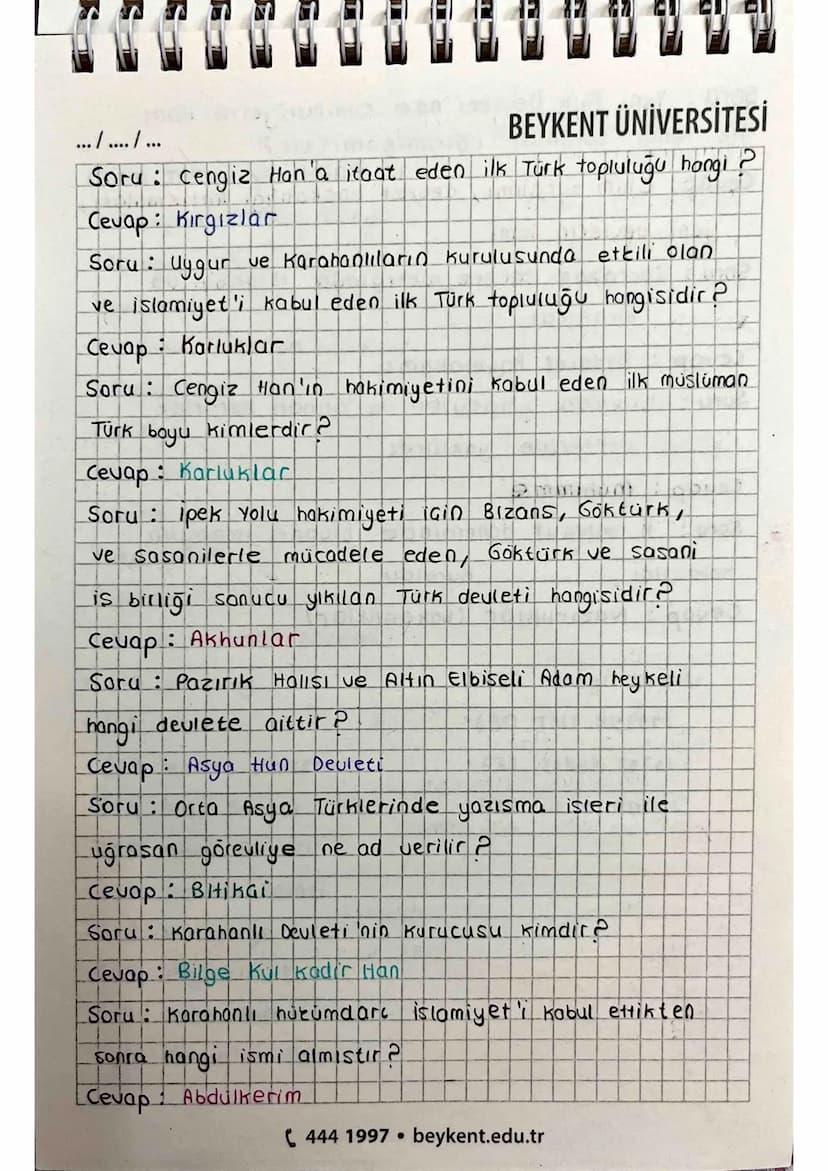 BEYKENT ÜNİVERSİTESİ
... / .... / ...
Soru : Cengiz Han'a itaat eden ilk Türk topluluğu hangi ?
Cevap : Kırgızlar
Soru : Uygur ve Karahanlıların kurulusunda etkili olan
ve islamiyet'i kabul eden ilk Türk topluluğu hangisidir?
Cevap : Karluklar
Soru : Cengiz Han'ın hakimiyetini kabul eden ilk müslüman
Türk boyu kimlerdir?
Cevap : Karluklar
Soru : İpek Yolu hakimiyeti icin Bizans, Göktürk,
ve sasanilerle mücadele eden, Göktürk ve sasani
is birliği sonucu yıkılan Türk devleti hangisidir?
Cevap : Akhunlar
Soru : Pazırık Halısı ve Altın Elbiseli Adam heykeli
hangi devlete aittir?
Cevap : Asya Hun Devleti
Soru : Orta Asya Türklerinde yazısma isleri ile
uğrasan görevliye ne ad verilir?
Cevap : Bitikci
Soru : Karahanlı Devleti'nin kurucusu kimdir?
Cevap : Bilge Kul Kadir Han
Soru : Karahanlı hükümdarı islamiyet'i kabul ettikten
sonra hangi ismi almıstır?
Cevap : Abdülkerim
444 1997 • beykent.edu.tr